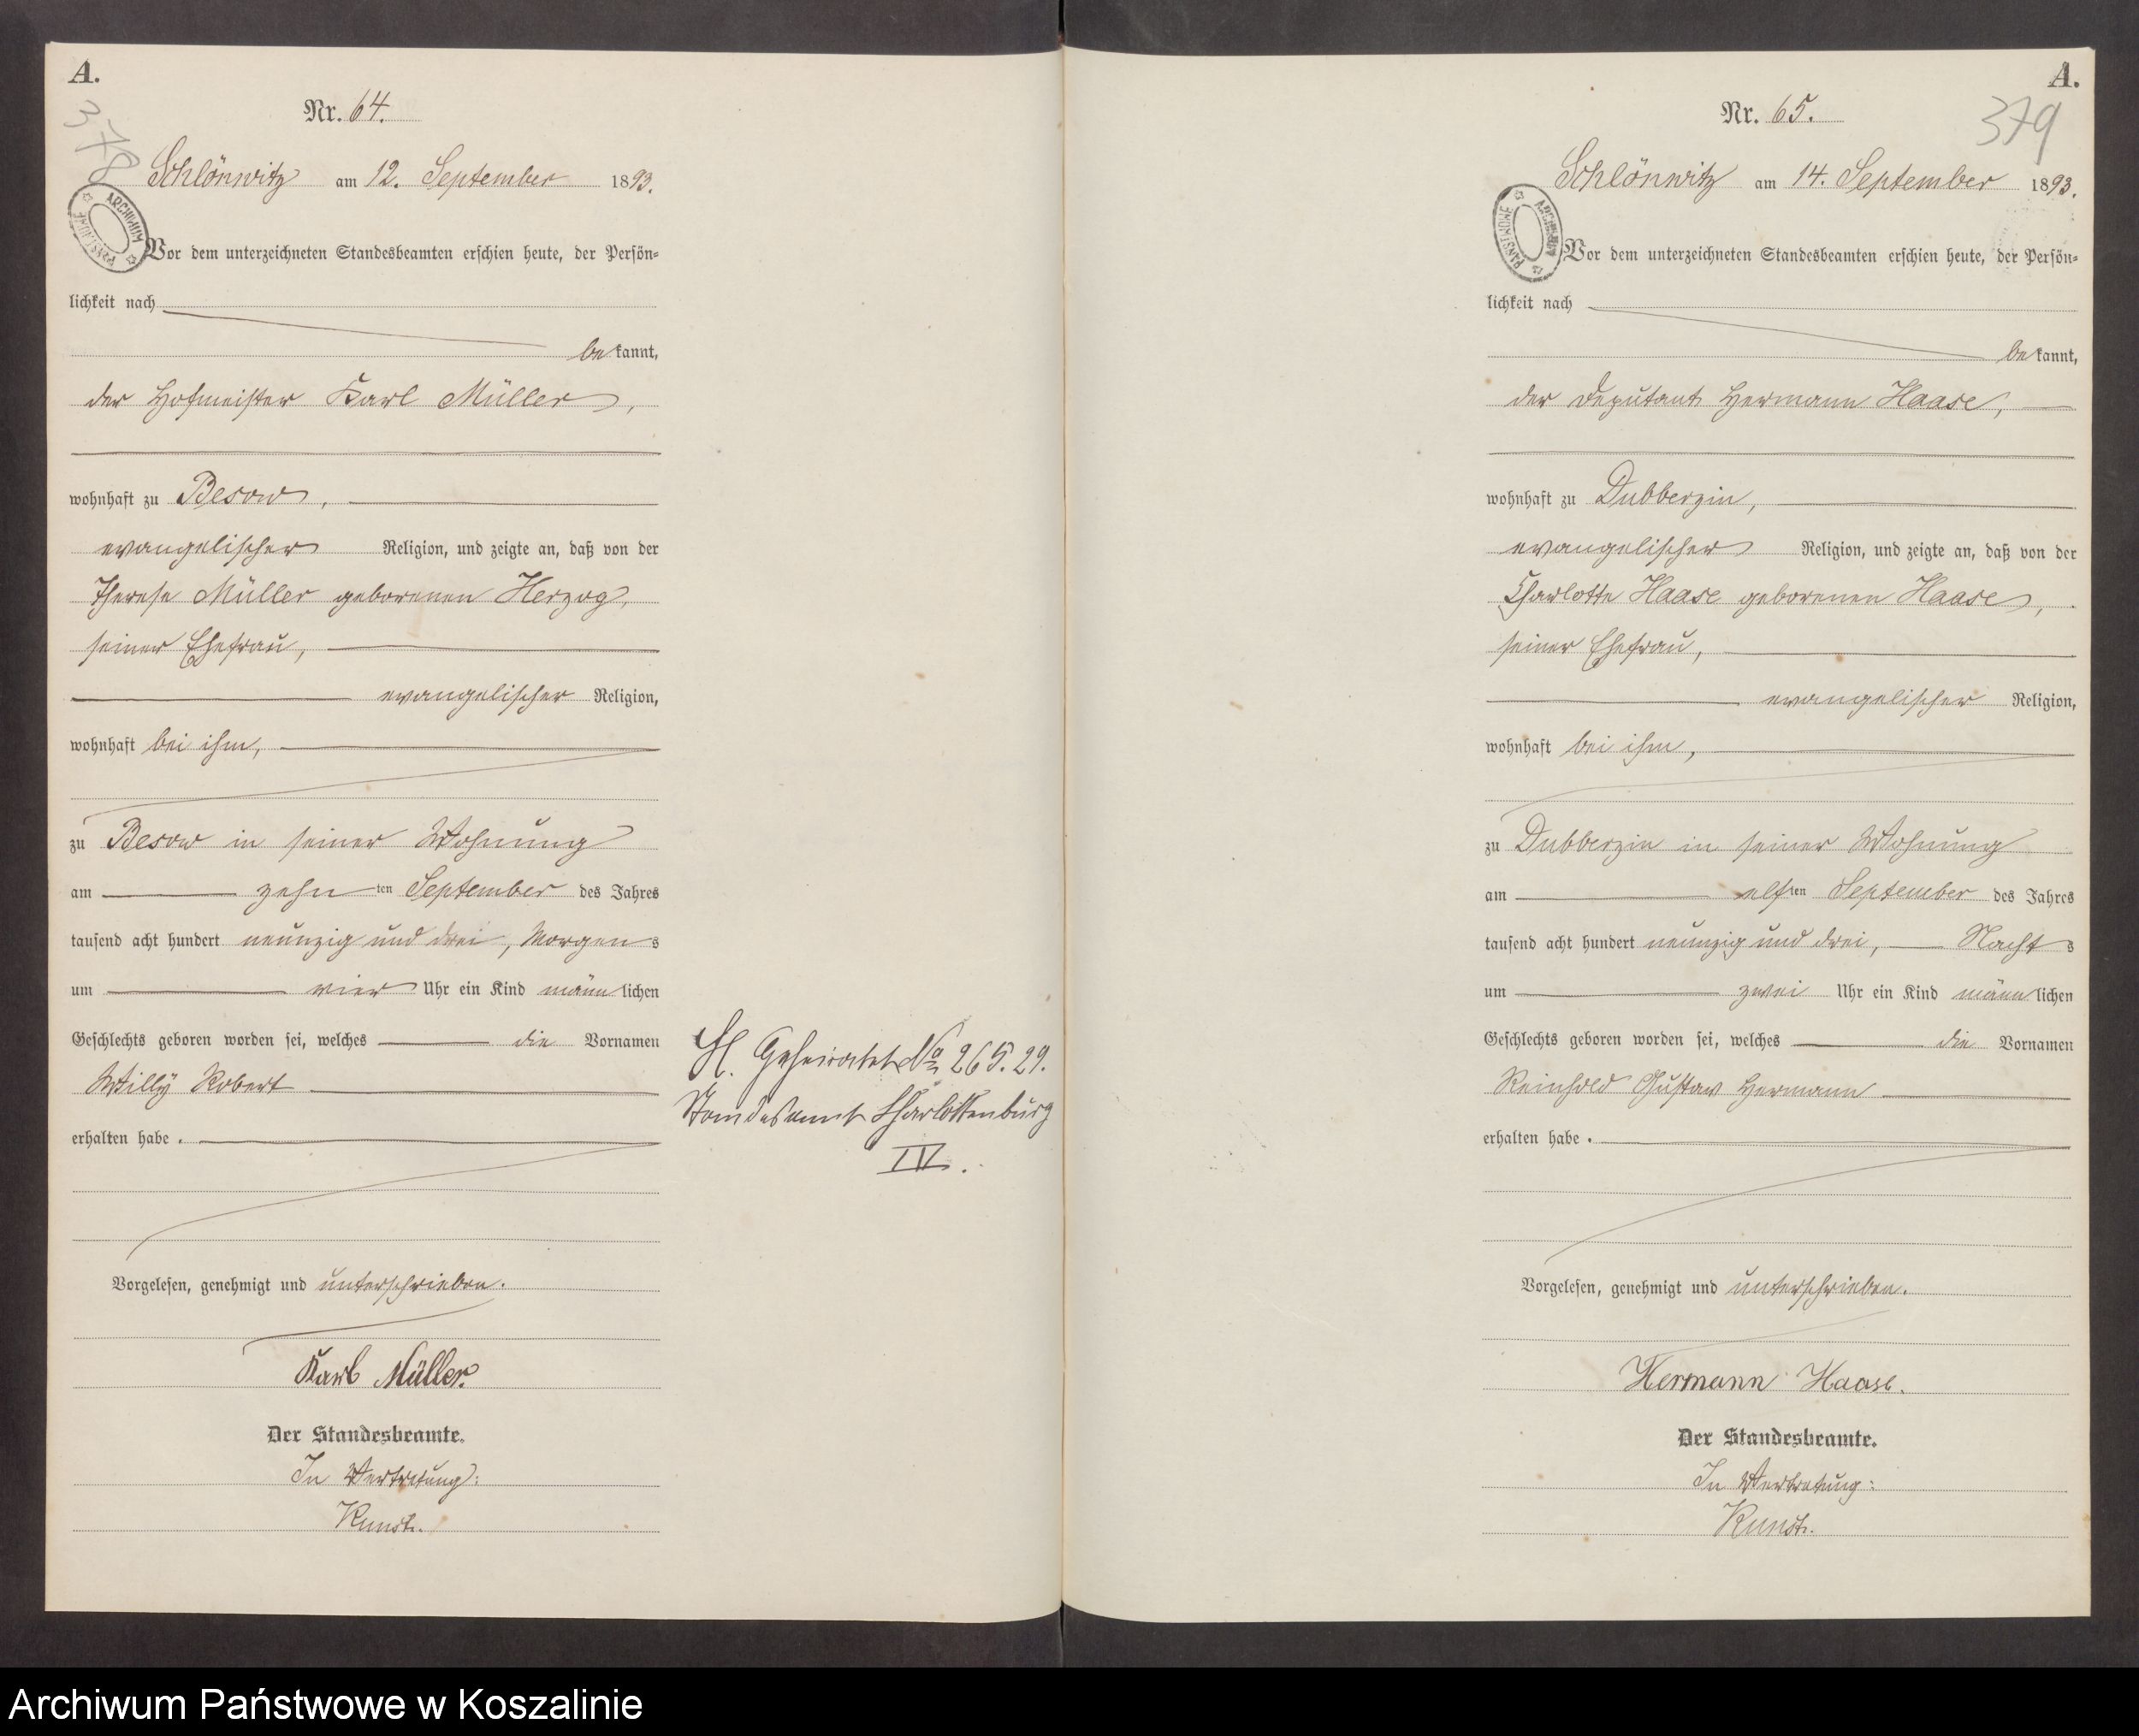 A.
Nr. 64.
378
Schlönwitz am 12. September 1893.
ARCHIWUM PAŃSTWOWE
Vor dem unterzeichneten Standesbeamten erschien heute, der Persön-
lichkeit nach
bekannt,
der Hofmeister Karl Müller,
wohnhaft zu Besow,
evangelischer Religion, und zeigte an, daß von der
Therese Müller geborenen Herzog,
seiner Ehefrau,
evangelischer Religion,
wohnhaft bei ihm,
zu Besow in seiner Wohnung
am zehnten September des Jahres
tausend acht hundert neunzig und drei, Morgens
um vier Uhr ein Kind männlichen
Geschlechts geboren worden sei, welches die Vornamen
Willy Robert
erhalten habe.
Vorgelesen, genehmigt und unterschrieben.
Karl Müller.
Der Standesbeamte.
In Vertretung:
Kunst.
H. Geheiratet No 265.29.
Standesamt Charlottenburg
IV.
A.
Nr. 65.
379
Schlönwitz am 14. September 1893.
ARCHIWUM PAŃSTWOWE
Vor dem unterzeichneten Standesbeamten erschien heute, der Persön-
lichkeit nach
bekannt,
der Deputant Hermann Haase,
wohnhaft zu Dubberzin,
evangelischer Religion, und zeigte an, daß von der
Charlotte Haase geborenen Haase,
seiner Ehefrau,
evangelischer Religion,
wohnhaft bei ihm,
zu Dubberzin in seiner Wohnung
am elften September des Jahres
tausend acht hundert neunzig und drei, Nachts
um zwei Uhr ein Kind männlichen
Geschlechts geboren worden sei, welches die Vornamen
Reinhold Gustav Hermann
erhalten habe.
Vorgelesen, genehmigt und unterschrieben.
Hermann Haase.
Der Standesbeamte.
In Vertretung:
Kunst.
Archiwum Państwowe w Koszalinie